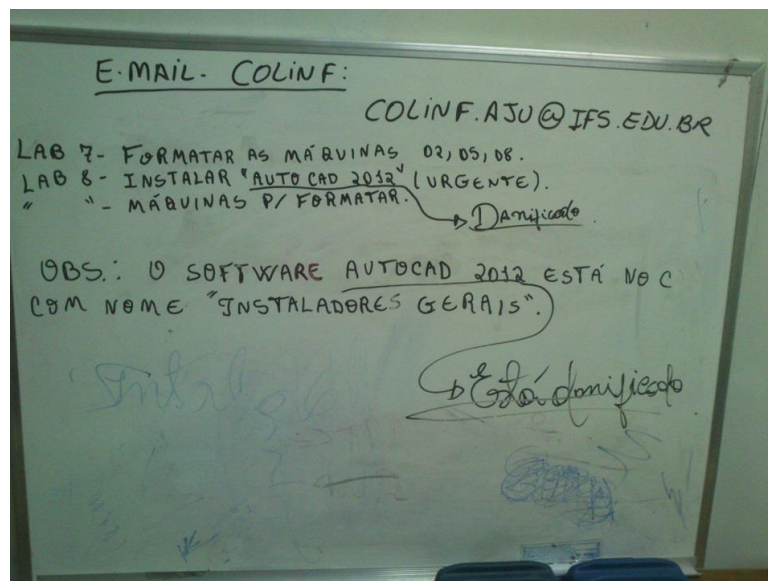 E-MAIL - COLINF:
COLINF.AJU@IFS.EDU.BR
LAB 7- FORMATAR AS MÁQUINAS 02, 05, 08.
LAB 8- INSTALAR "AUTO CAD 2012" (URGENTE).
" "- MÁQUINAS P/ FORMATAR.
Danificado.
OBS.: O SOFTWARE AUTOCAD 2012 ESTÁ NO C
COM NOME "INSTALADORES GERAIS".
Está danificado